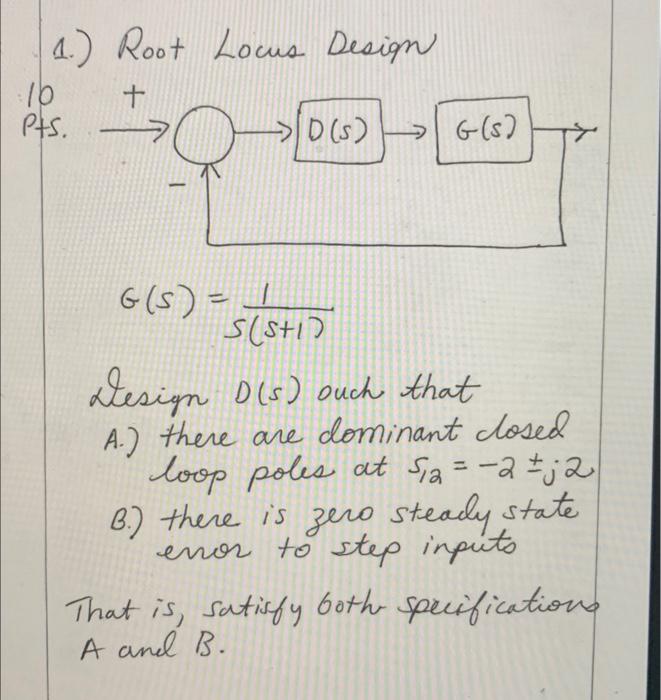 1.) Root Locus Design
10 +
Pts. D(s) G(s)
-
G(s) = 1
s(s+1)
Design D(s) such that
A.) there are dominant closed
loop poles at s12 = -2 ± j2
B.) there is zero steady state
error to step inputs
That is, satisfy both specifications
A and B.